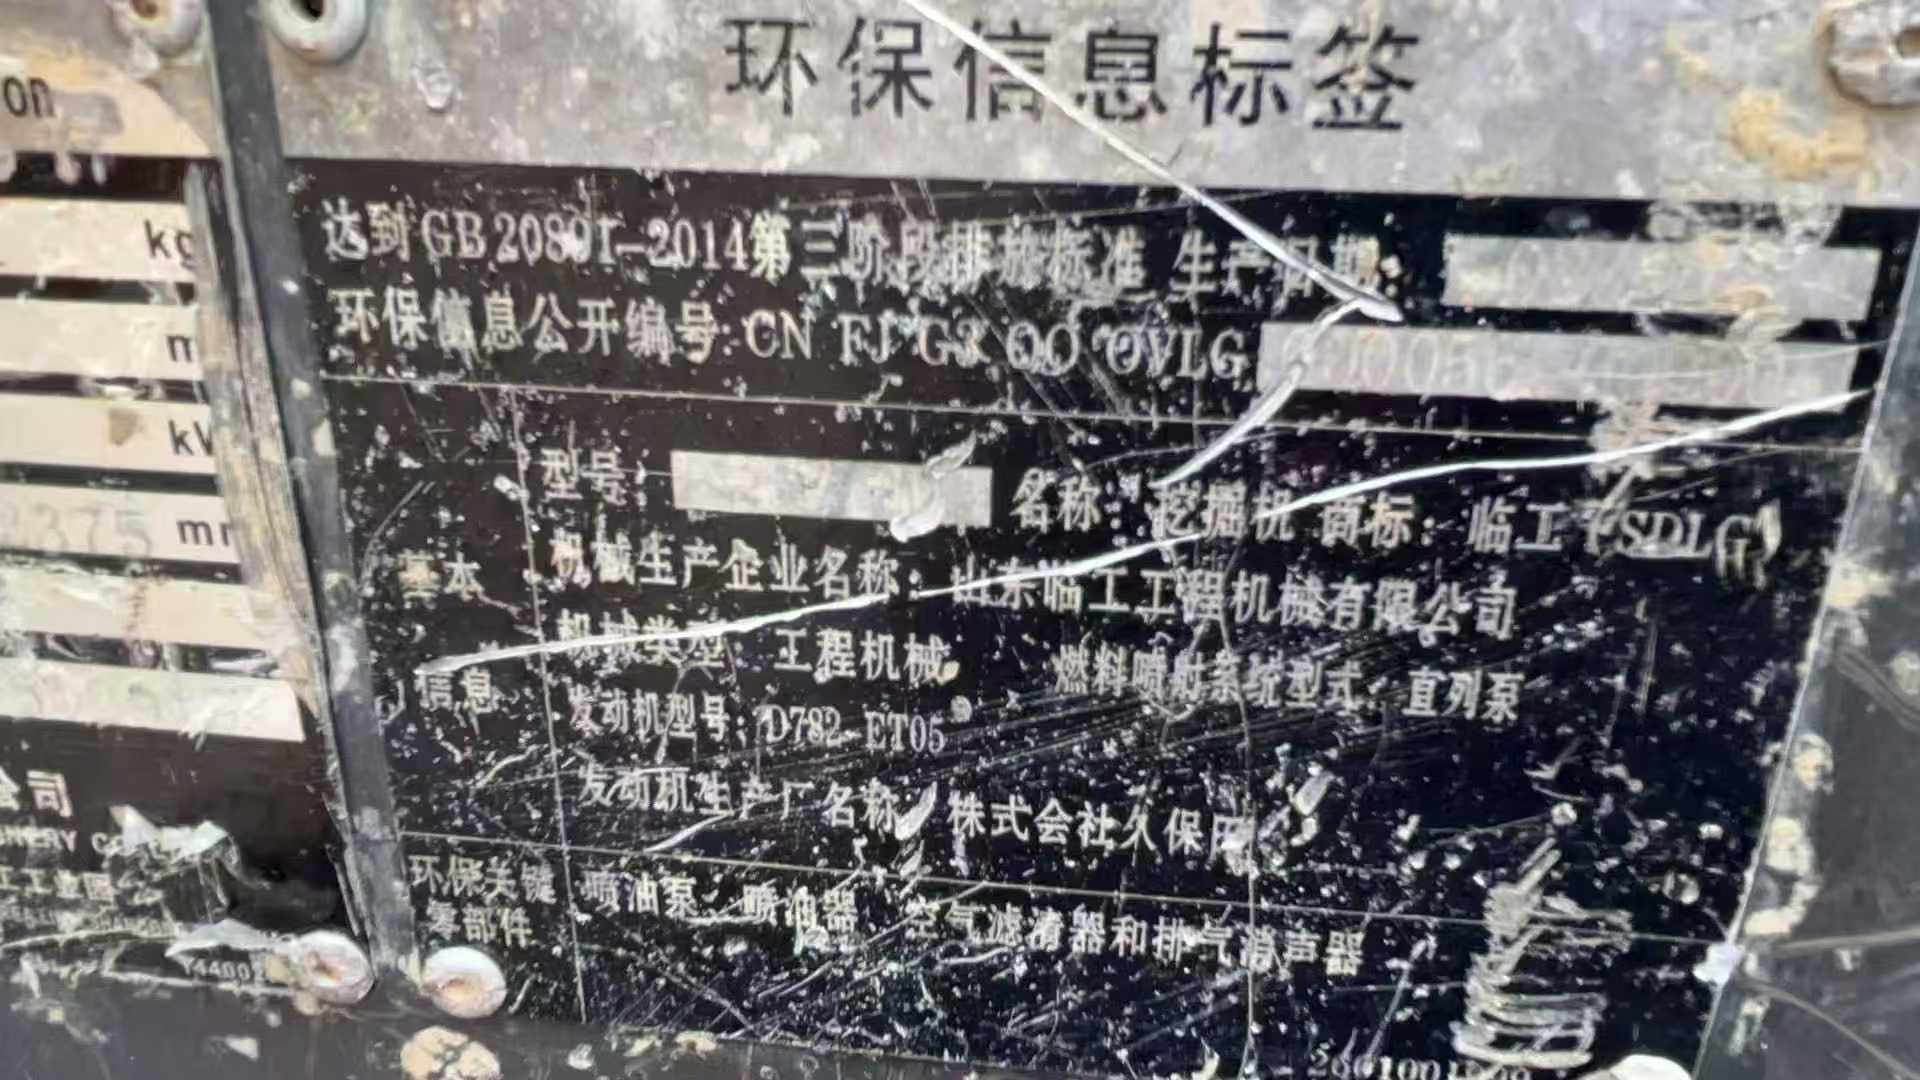 环保信息标签
达到GB20891-2014第三阶段排放标准 生产日期:
环保信息公开编号: CN FJ G3 00 0VLG
型号: 名称: 挖掘机 商标: 临工 (SDLG)
机械生产企业名称: 山东临工工程机械有限公司
机械类型: 工程机械 燃料喷射系统型式: 直列泵
发动机型号: D782-ET05
发动机生产厂名称: 株式会社久保田
基本
信息
环保关键
零部件
喷油泵、喷油器、空气滤清器和排气消声器
on
kg
3375 mm
公司